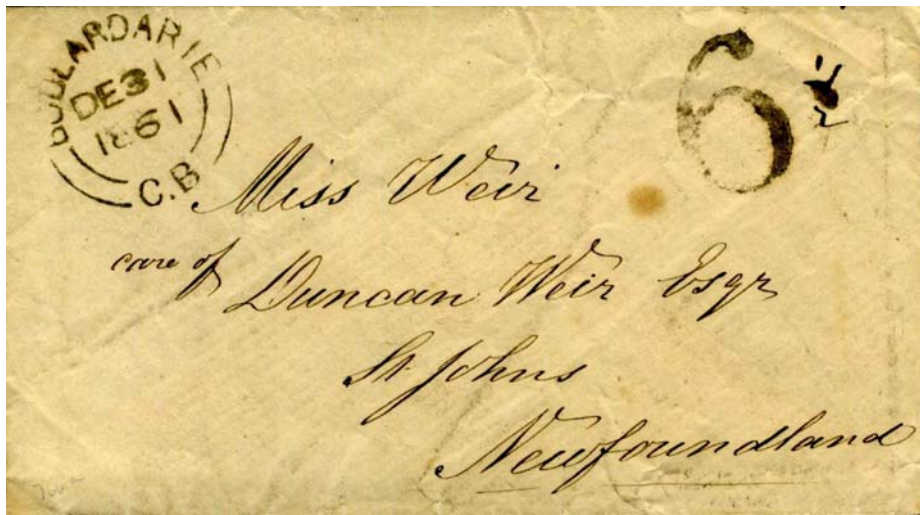 BOULARDARIE
DE 31
1861
C.B
6 ½
Miss Weir
care of
Duncan Weir Esqr
St. Johns
Newfoundland